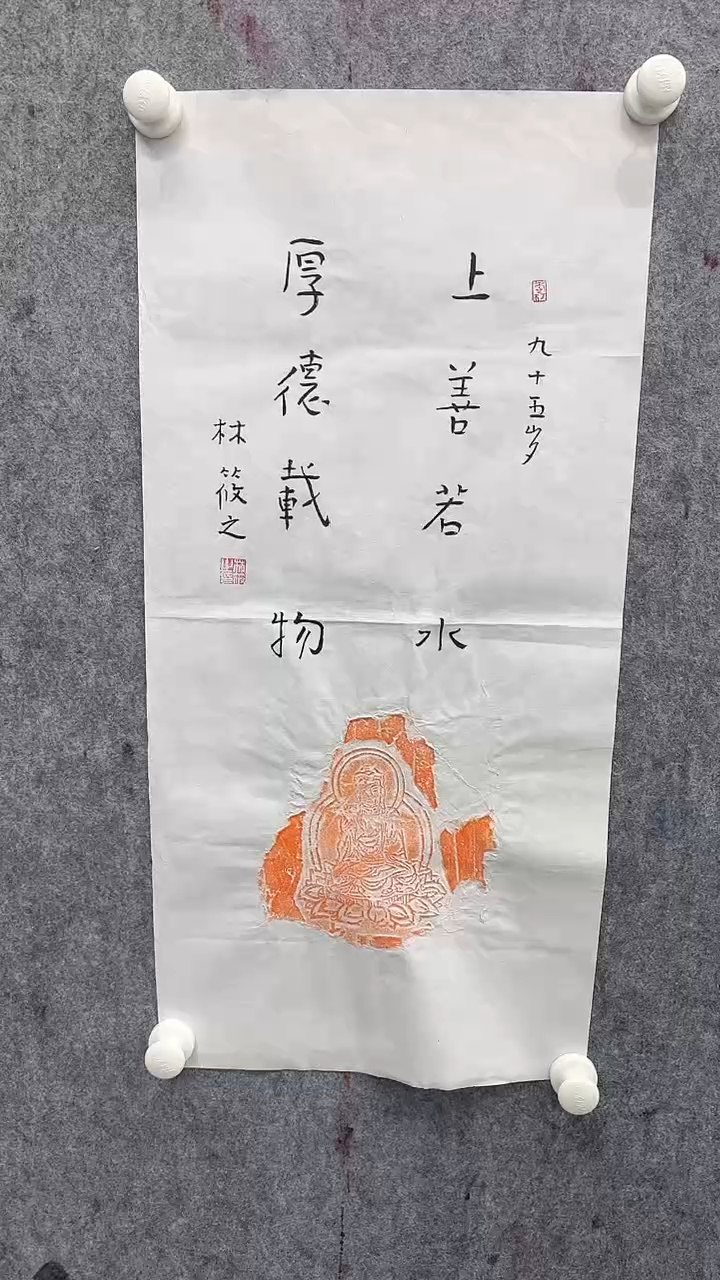 九十五岁
上善若水
厚德載物
林筱之